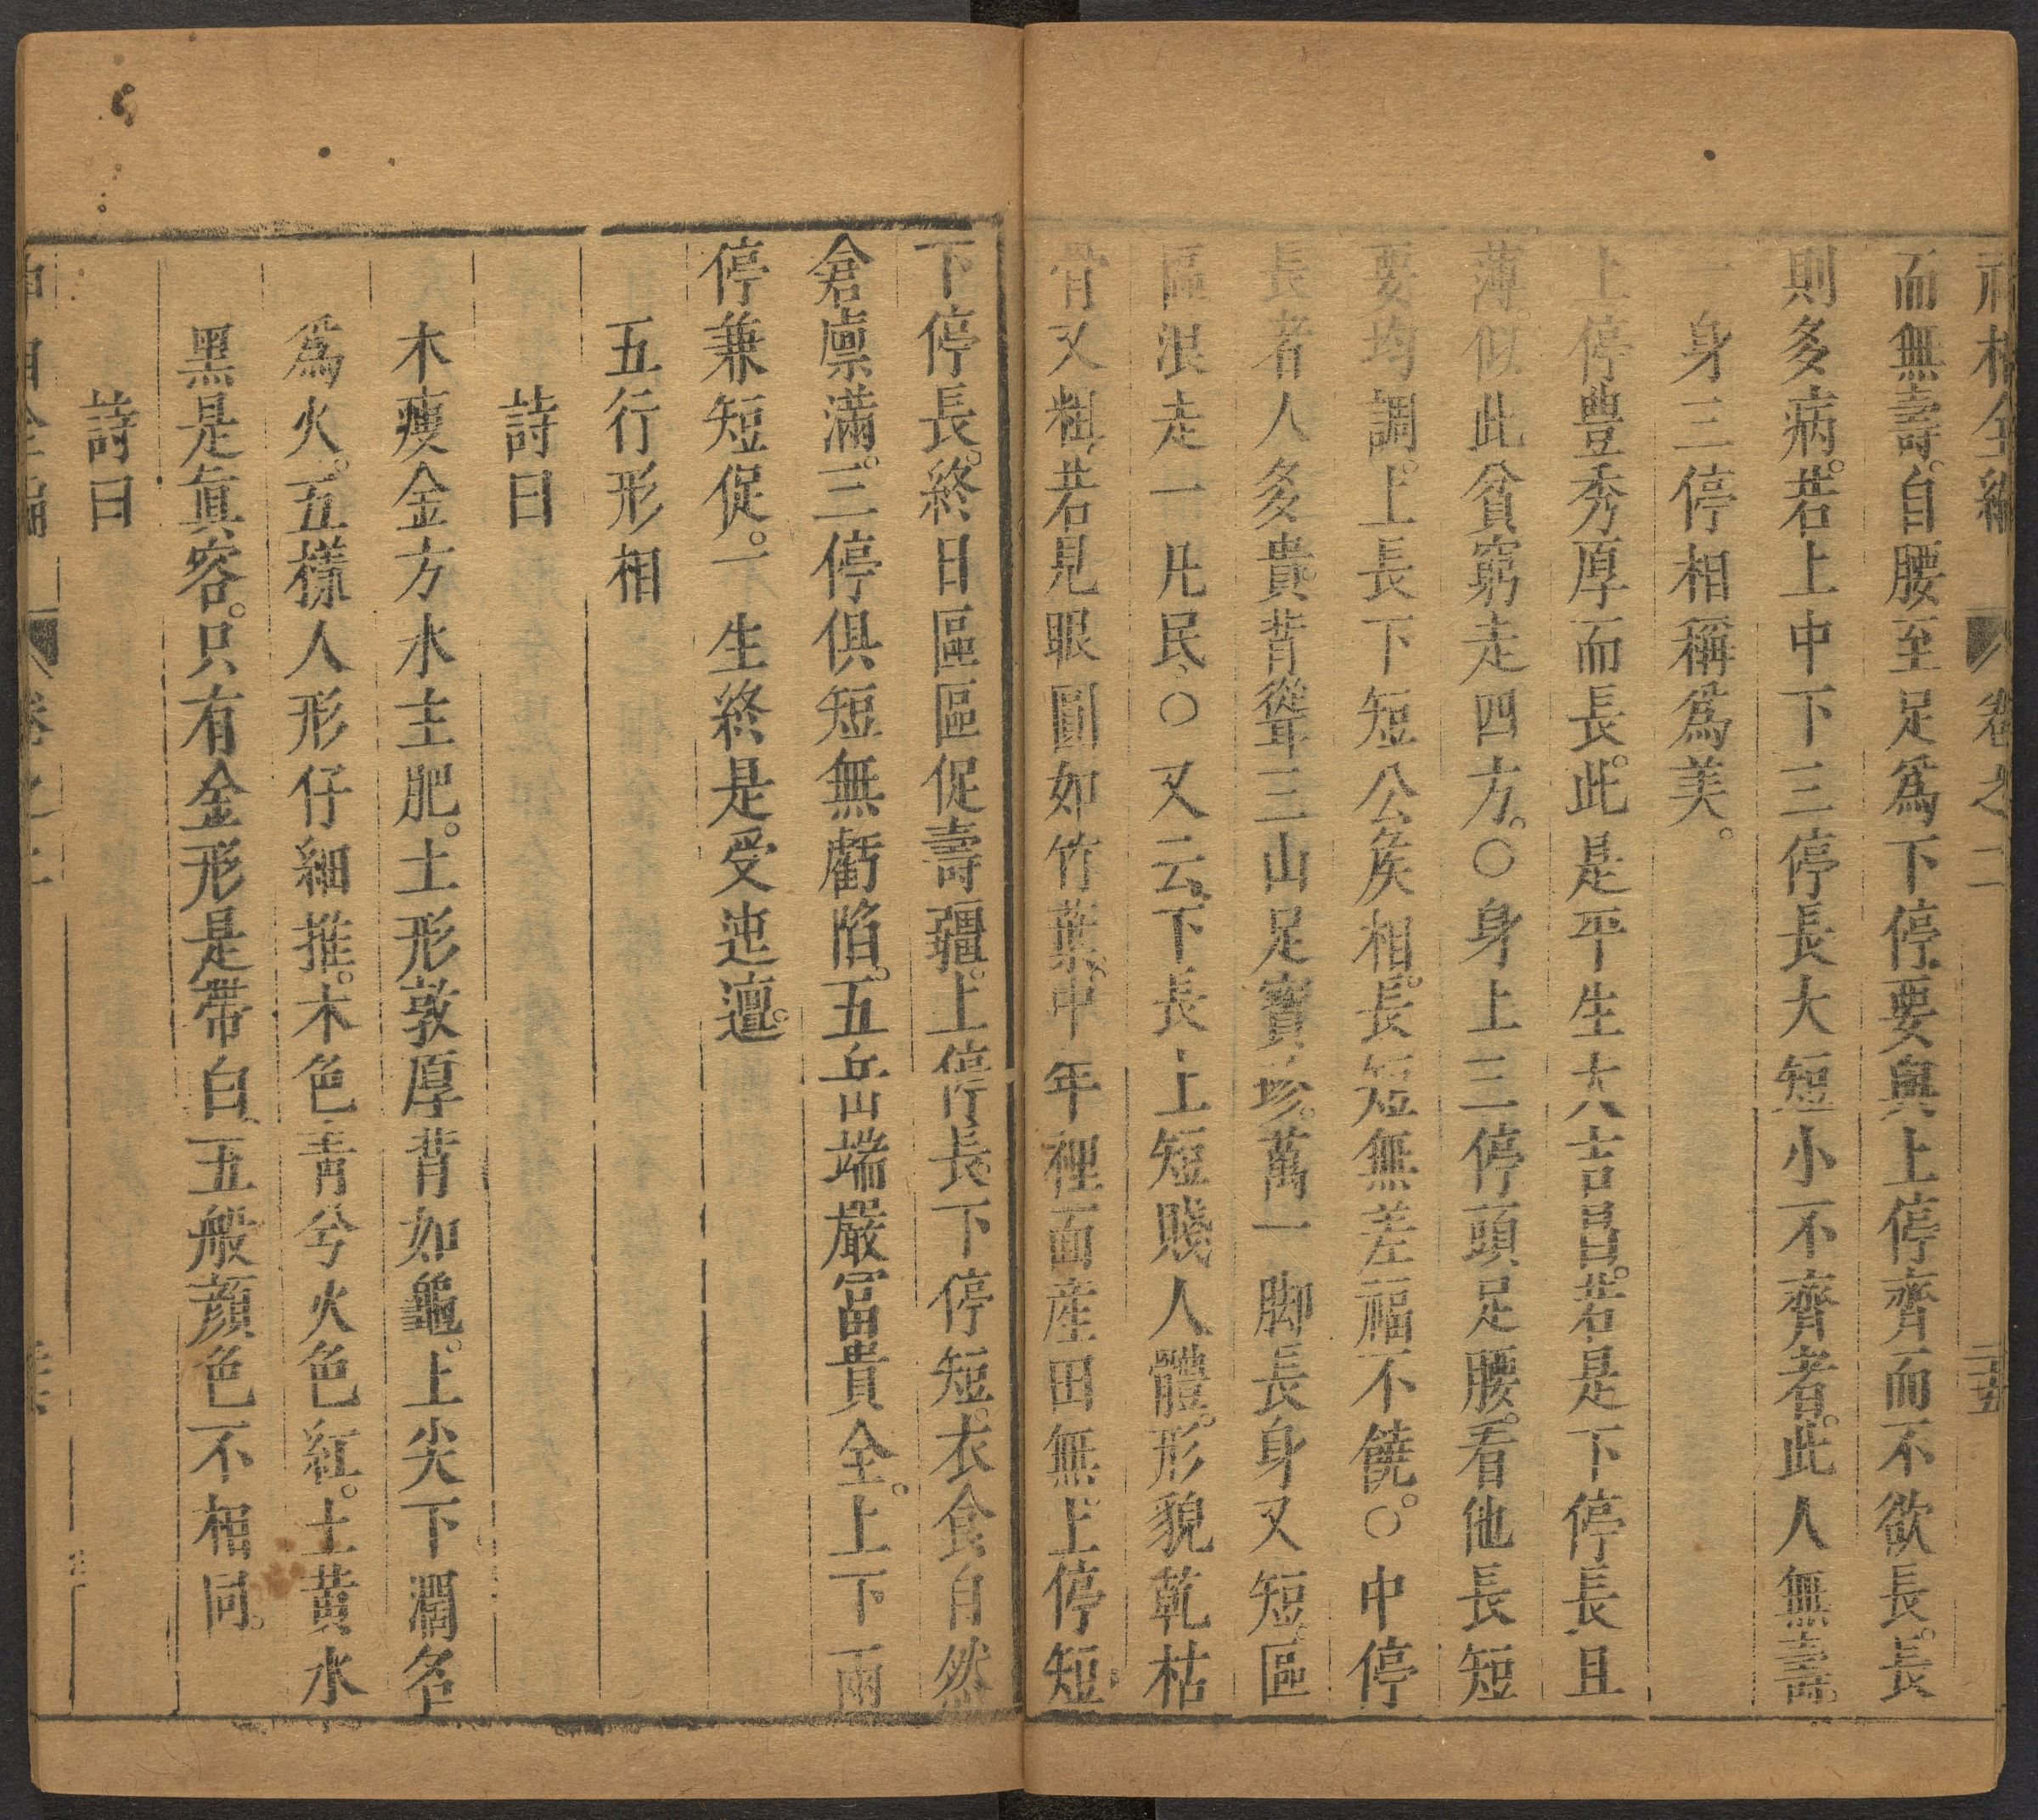 神相全編 卷之二 二十五
而無壽。自腰至足爲下停。要與上停齊而不欲長。長
則多病。若上中下三停長大短小不齊者。此人無壽。
一身三停相稱爲美。
上停豊秀厚而長。此是平生大吉昌。若是下停長且
薄。似此貧窮走四方。○身上三停頭足腰。看他長短
要均調。上長下短公矦相。長短無差福不饒。○中停
長者人多貴。背聳三山足寶珍。萬一脚長身又短。區
區浪走一凡民、○又云、下長上短賤人體。形貌乾枯
骨又粗、若見眼圓如竹葉。中年裡面産田無。上停短
下停長。終日區區促壽疆。上停長。下停短。衣食自然
倉廪滿。三停俱短無虧陷。五岳端嚴冨貴全。上下兩
停兼短促。一生終是受迍邅。
五行形相
詩曰
木瘦金方水主肥。土形敦厚背如龜。上尖下濶名
爲火。五樣人形仔細推。木色青兮火色紅。土黃水
黑是眞容。只有金形是帶白、五般顔色不相同。
詩曰